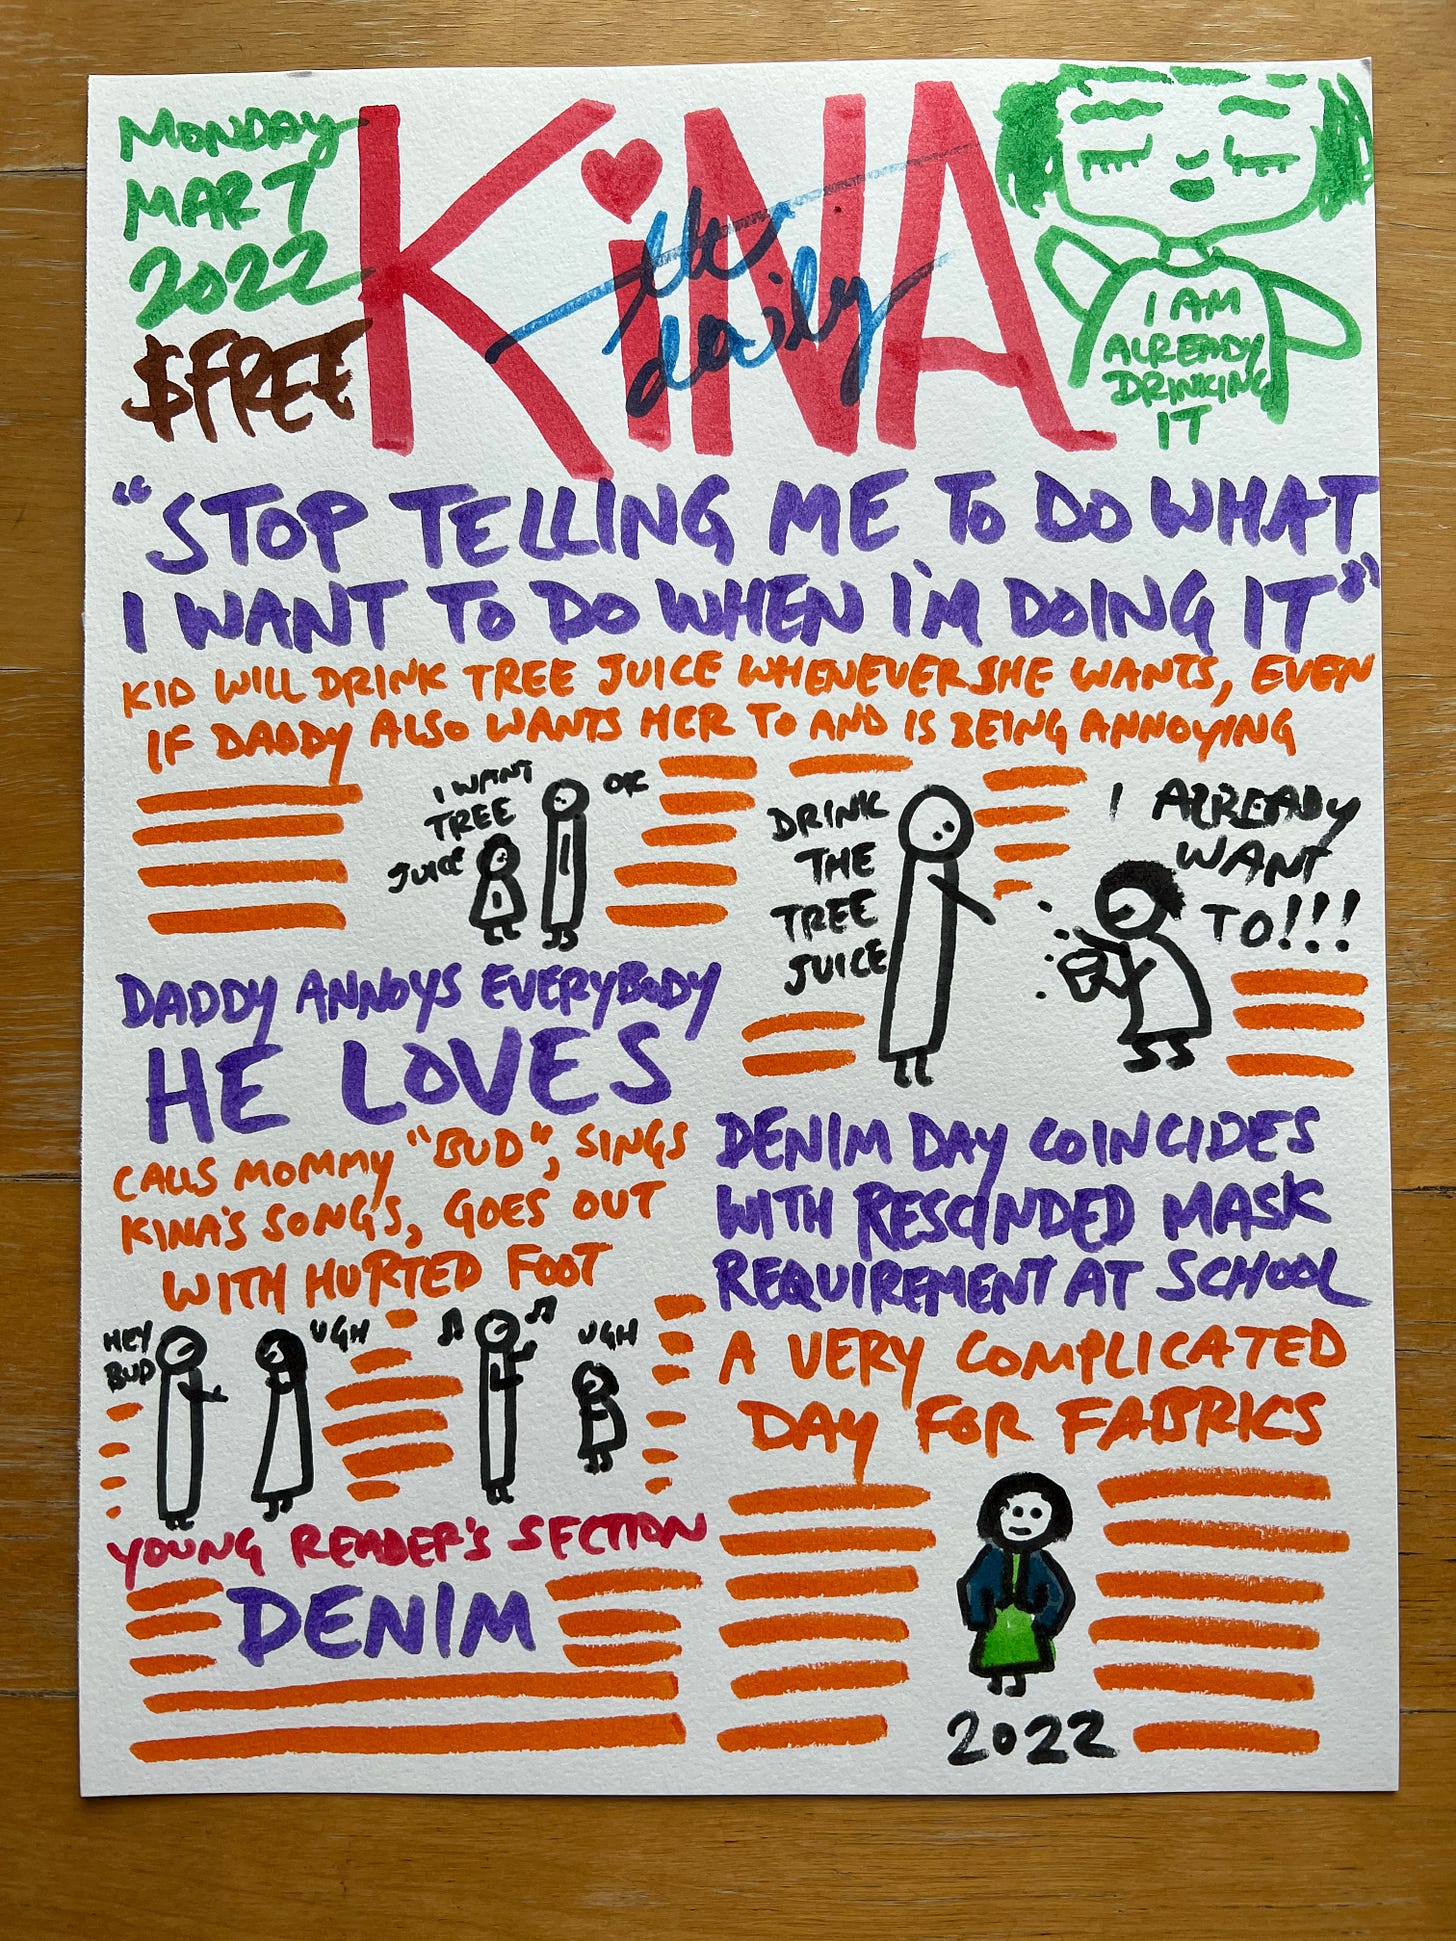 MONDAY
MAR 7
2022
$FREE
KiNA
the
daily
I AM
ALREADY
DRINKING
IT
"STOP TELLING ME TO DO WHAT
I WANT TO DO WHEN I'M DOING IT"
KID WILL DRINK TREE JUICE WHENEVER SHE WANTS, EVEN
IF DADDY ALSO WANTS HER TO AND IS BEING ANNOYING
I WANT
TREE
JUICE
OK
DRINK
THE
TREE
JUICE
I ALREADY
WANT
TO!!!
DADDY ANNOYS EVERYBODY
HE LOVES
CALLS MOMMY "BUD", SINGS
KINA'S SONGS, GOES OUT
WITH HURTED FOOT
HEY
BUD
UGH
UGH
DENIM DAY COINCIDES
WITH RESCINDED MASK
REQUIREMENT AT SCHOOL
A VERY COMPLICATED
DAY FOR FABRICS
2022
YOUNG READER'S SECTION
DENIM